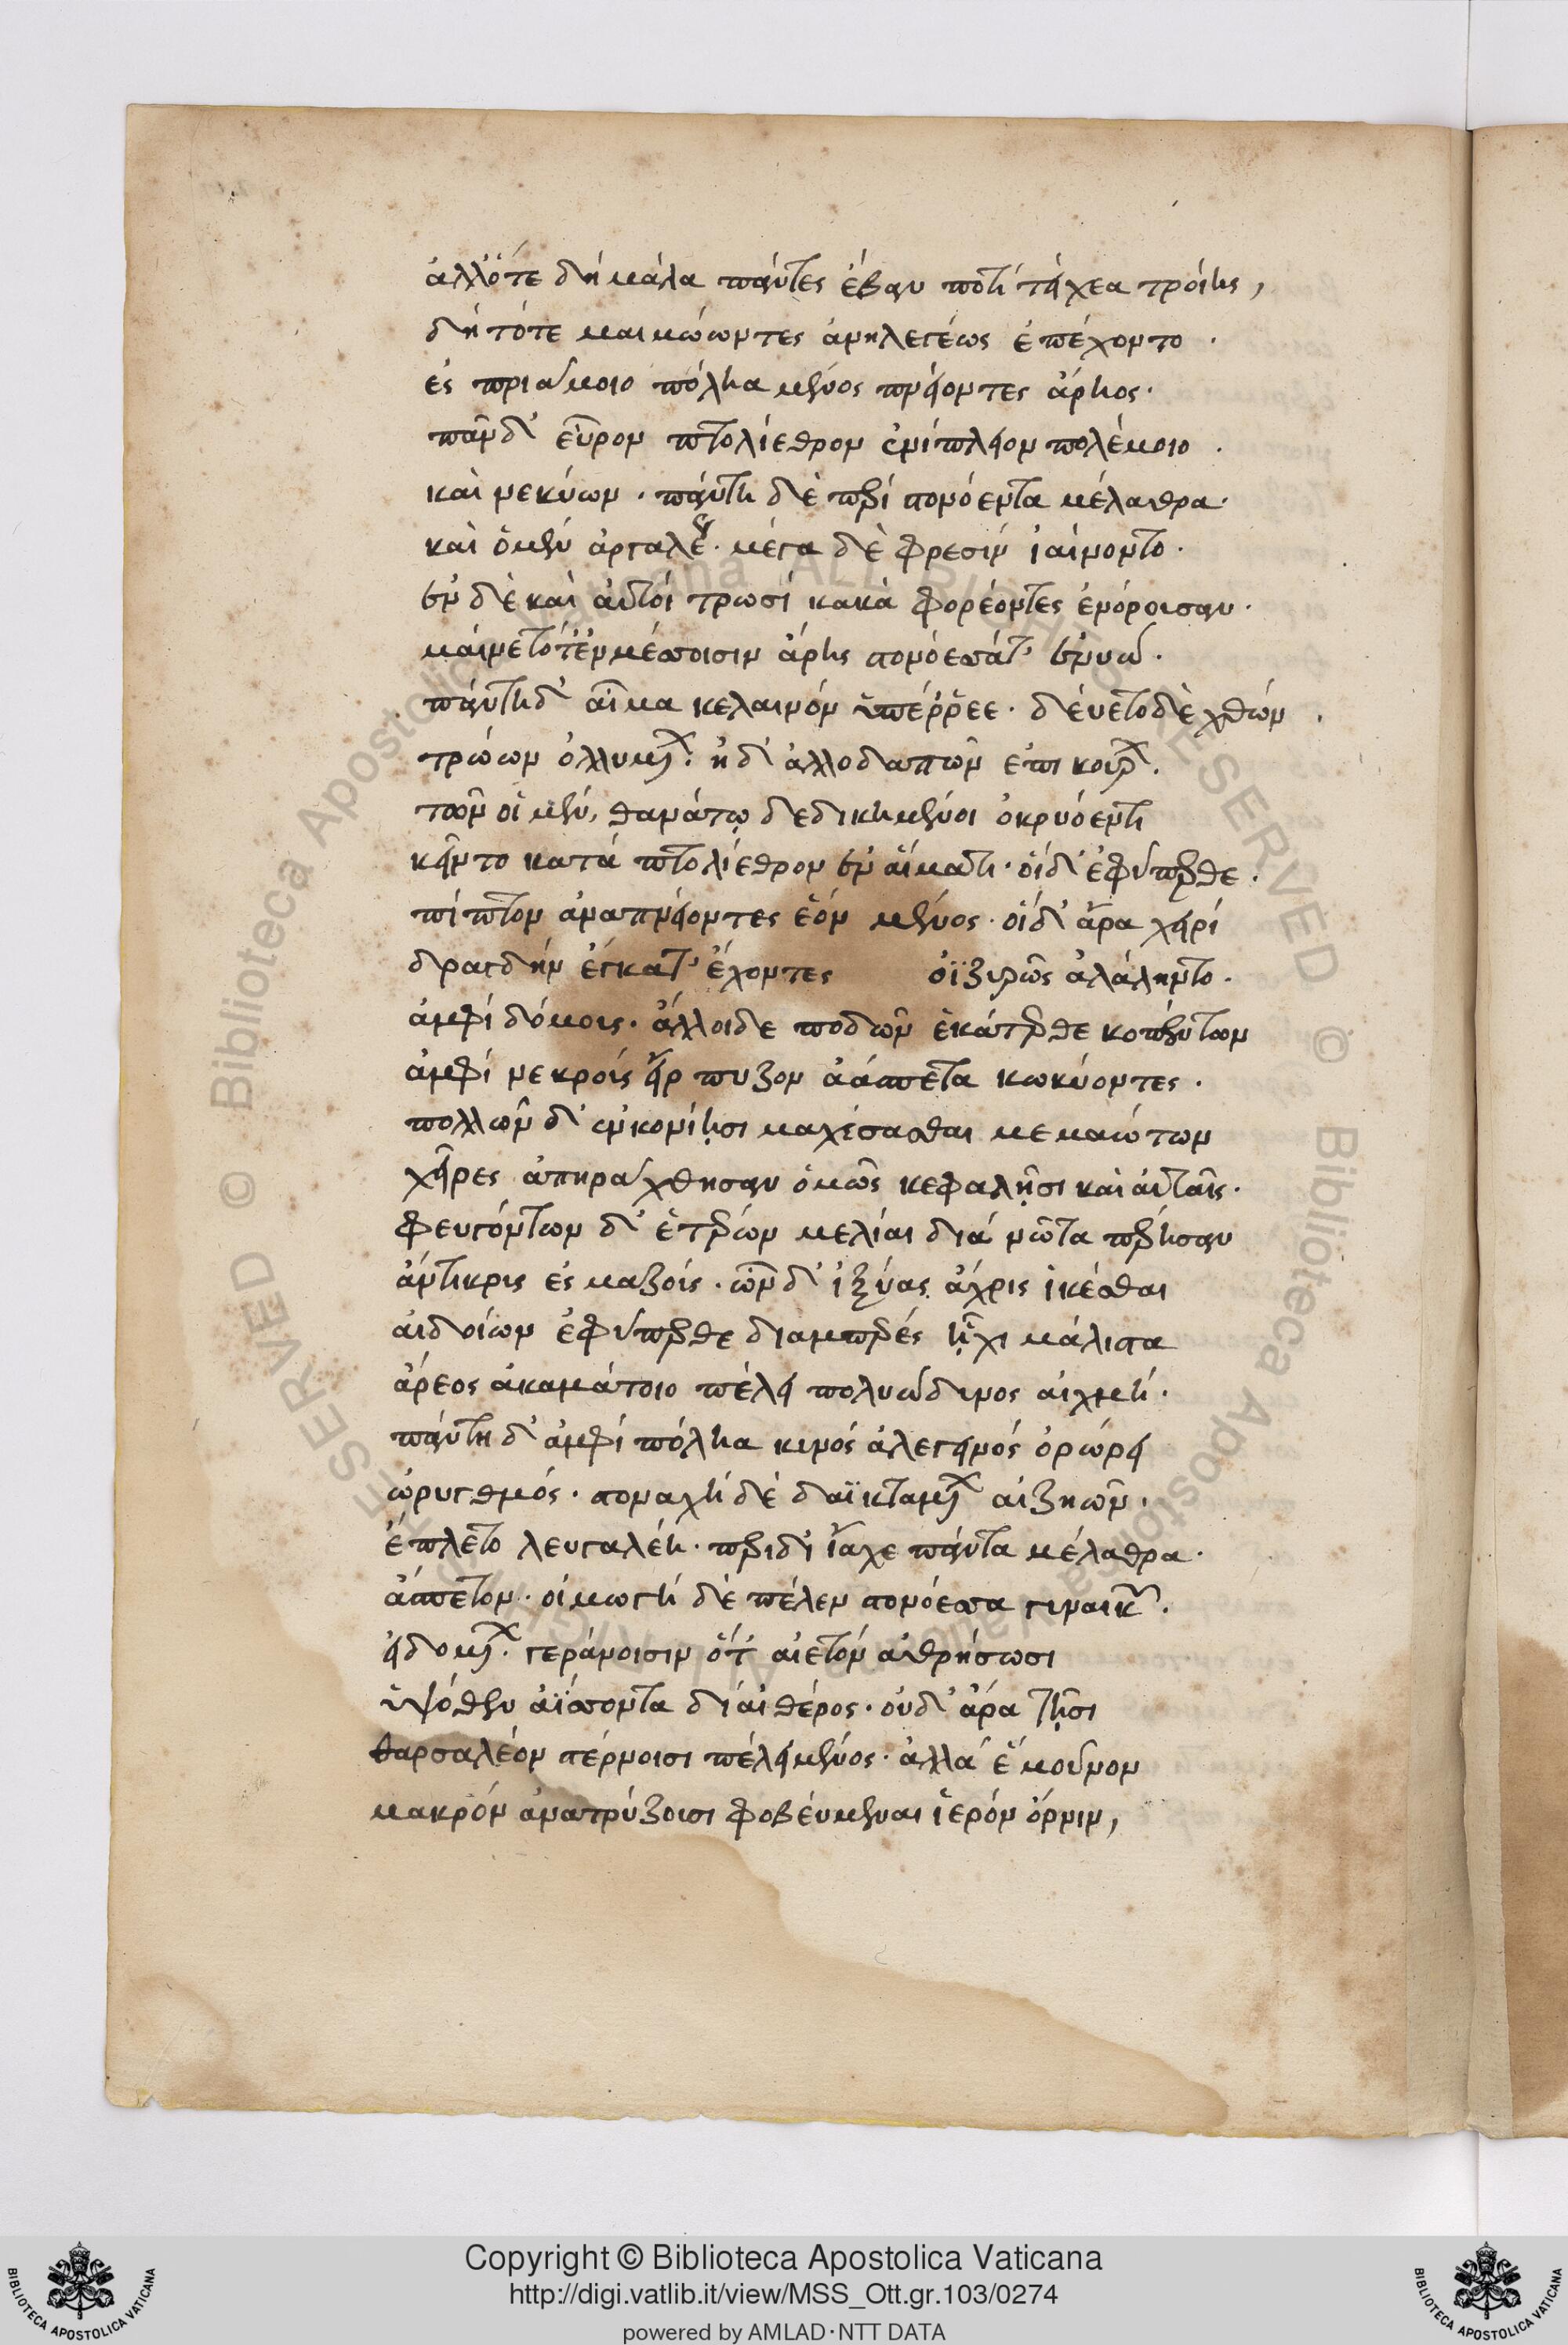 ἀλλ' ὅτε δὴ μάλα πάντες ἔβαν ποτὶ τείχεα τροίης,
δὴ τότε μαιμώωντες ἀνηλεγέως ἐπέχοντο.
ἐς πριάμοιο πόληα μένος πνείοντες ἄρηος.
πᾶν δ' εὗρον πτολίεθρον ἐνίπλειον πολέμοιο.
καὶ νεκύων. πάντη δὲ περὶ στονόεντα μέλαθρα.
καὶ ὁ μὲν ἀργαλέως. μέγα δὲ φρεσὶν ἰαίνοντο.
ἐν δὲ καὶ αὐτοὶ τρωσὶ κακὰ φορέοντες ἐνόρουσαν.
μαίνετο τ' ἐν μέσοισιν ἄρης στονόεσσάτ' ἐνυώ.
πάντη δ' αἷμα κελαινὸν ὑπέρρεε. δεύετο δὲ χθών.
τρώων ὀλλυμένων. ἠδ' ἀλλοδαπῶν ἐπικούρων.
τῶν οἱ μὲν, θανάτῳ δεδικημένοι ὀκρυόεντι
κεῖντο κατὰ πτολίεθρον ἐν αἵματι. οἱ δ' ἐφύπερθε.
πίπτον ἀναπνείοντες ἑὸν μένος. οἱ δ' ἄρα χειρὶ
δραγδὴν ἔγκατ' ἔχοντες ὀϊζυρῶς ἀλάληντο.
ἀμφὶ δόμοις. ἄλλοι δε ποδῶν ἑκάτερθε κοπέντων
ἀμφὶ νεκροὺς εἷρπυζον ἀάσπετα κωκύοντες.
πολλῶν δ' ἐν κονίῃσι μαχέσασθαι μεμαώτων
χεῖρες ἀπηράχθησαν ὁμῶς κεφαλῇσι καὶ αὐταῖς.
φευγόντων δ' ἑτέρων μελίαι διὰ νῶτα πέρησαν
ἀντικρὺς ἐς μαζούς. ὧν δ' ἰξύας ἄχρις ἱκέσθαι
αἰδοίων ἐφύπερθε διαμπερές ᾗχι μάλιστα
ἄρεος ἀκαμάτοιο πέλει πολυώδυνος αἰχμή.
πάντη δ' ἀμφὶ πόληα κυνὸς ἀλεγεινὸς ὀρώρει
ὠρυγθμός. στοναχὴ δὲ δαϊκταμένων αἰζηῶν.
ἔπλετο λευγαλέη. περὶ δ' ἴαχε πάντα μέλαθρα.
ἄσπετον. οἰμωγὴ δὲ πέλεν στονόεσσα γυναικῶν.
εἰδομένων. γεράνοισιν ὅτ' αἰετὸν ἀθρήσωσι
ὑψόθεν ἀΐσσοντα δι' αἰθέρος. οὐδ' ἄρα τῇσι
θαρσαλέον στέρνοισι πέλει μένος. ἀλλὰ ἑ μοῦνον
μακρὸν ἀνατρύζουσι φοβεύμεναι ἱερὸν ὄρνιν,
Copyright © Biblioteca Apostolica Vaticana
http://digi.vatlib.it/view/MSS_Ott.gr.103/0274
powered by AMLAD·NTT DATA